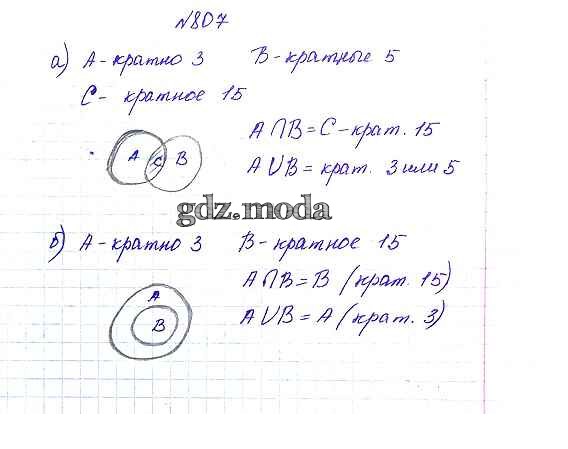 №807
а) А - кратно 3 В - кратные 5
С - кратное 15
А С В
А∩В = С - крат. 15
А∪В = крат. 3 или 5
gdz.moda
б) А - кратно 3 В - кратное 15
А
В
А∩В = В (крат. 15)
А∪В = А (крат. 3)